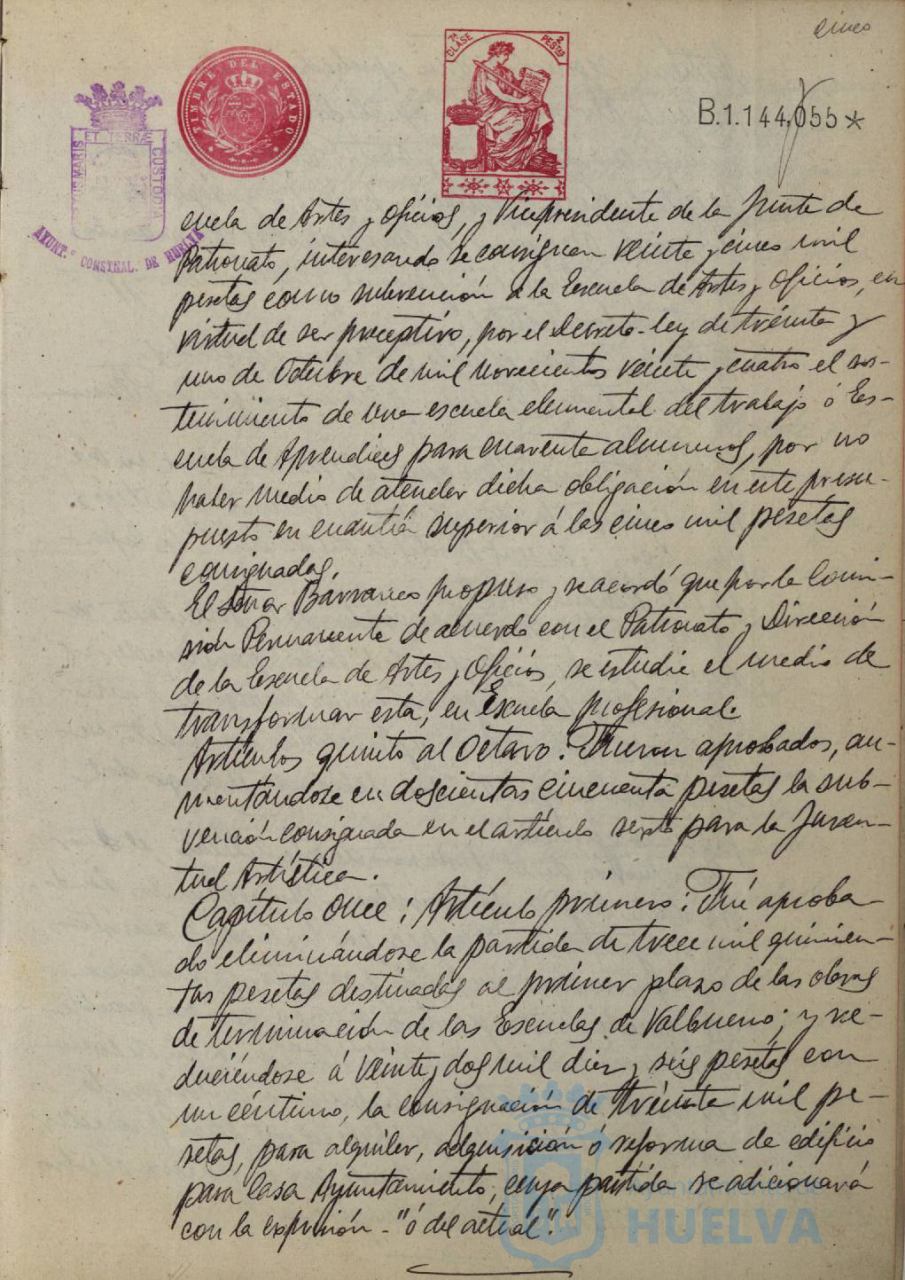 cinco
7ª CLASE
2 PESTAS
TIMBRE DEL ESTADO
B.1.144,055*
ET TERRÆ
MARIS
CUSTODIA
AYUNT.º CONSTNAL. DE HUELVA
cuela de Artes y Oficios, y Vicepresidente de la Junta de
Patronato, interesando se consignan veinte y cinco mil
pesetas como subvención a la Escuela de Artes y Oficios, en
virtud de ser preceptivo, por el Decreto-ley de treinta y
uno de Octubre de mil novecientos veinte y cuatro el sos-
tenimiento de una escuela elemental del trabajo ó Es-
cuela de Aprendices para cuarenta alumnos, por no
haber medio de atender dicha obligación en este presu-
puesto en cuantía superior á las cinco mil pesetas
consignadas.
El Señor Barranco propuso y se acordó que por la Comi-
sión Permanente de acuerdo con el Patronato y Dirección
de la Escuela de Artes y Oficios, se estudie el medio de
transformar esta, en Escuela profesional.
Artículos quinto al Octavo: Fueron aprobados, au-
mentándose en doscientas cincuenta pesetas la sub-
vención consignada en el artículo sexto para la Juven-
tud Artística.
Capítulo Once: Artículo primero: Fué aproba-
do eliminándose la partida de trece mil quinien-
tas pesetas destinadas al primer plazo de las obras
de terminación de las Escuelas de Valbueno; y re-
duciéndose á veinte y dos mil diez y seis pesetas con
un céntimo, la consignación de treinta mil pe-
setas, para alquiler, adquisición ó reforma de edificio
para Casa Ayuntamiento, cuya partida se adicionará
con la expresión - "ó del actual".
HUELVA